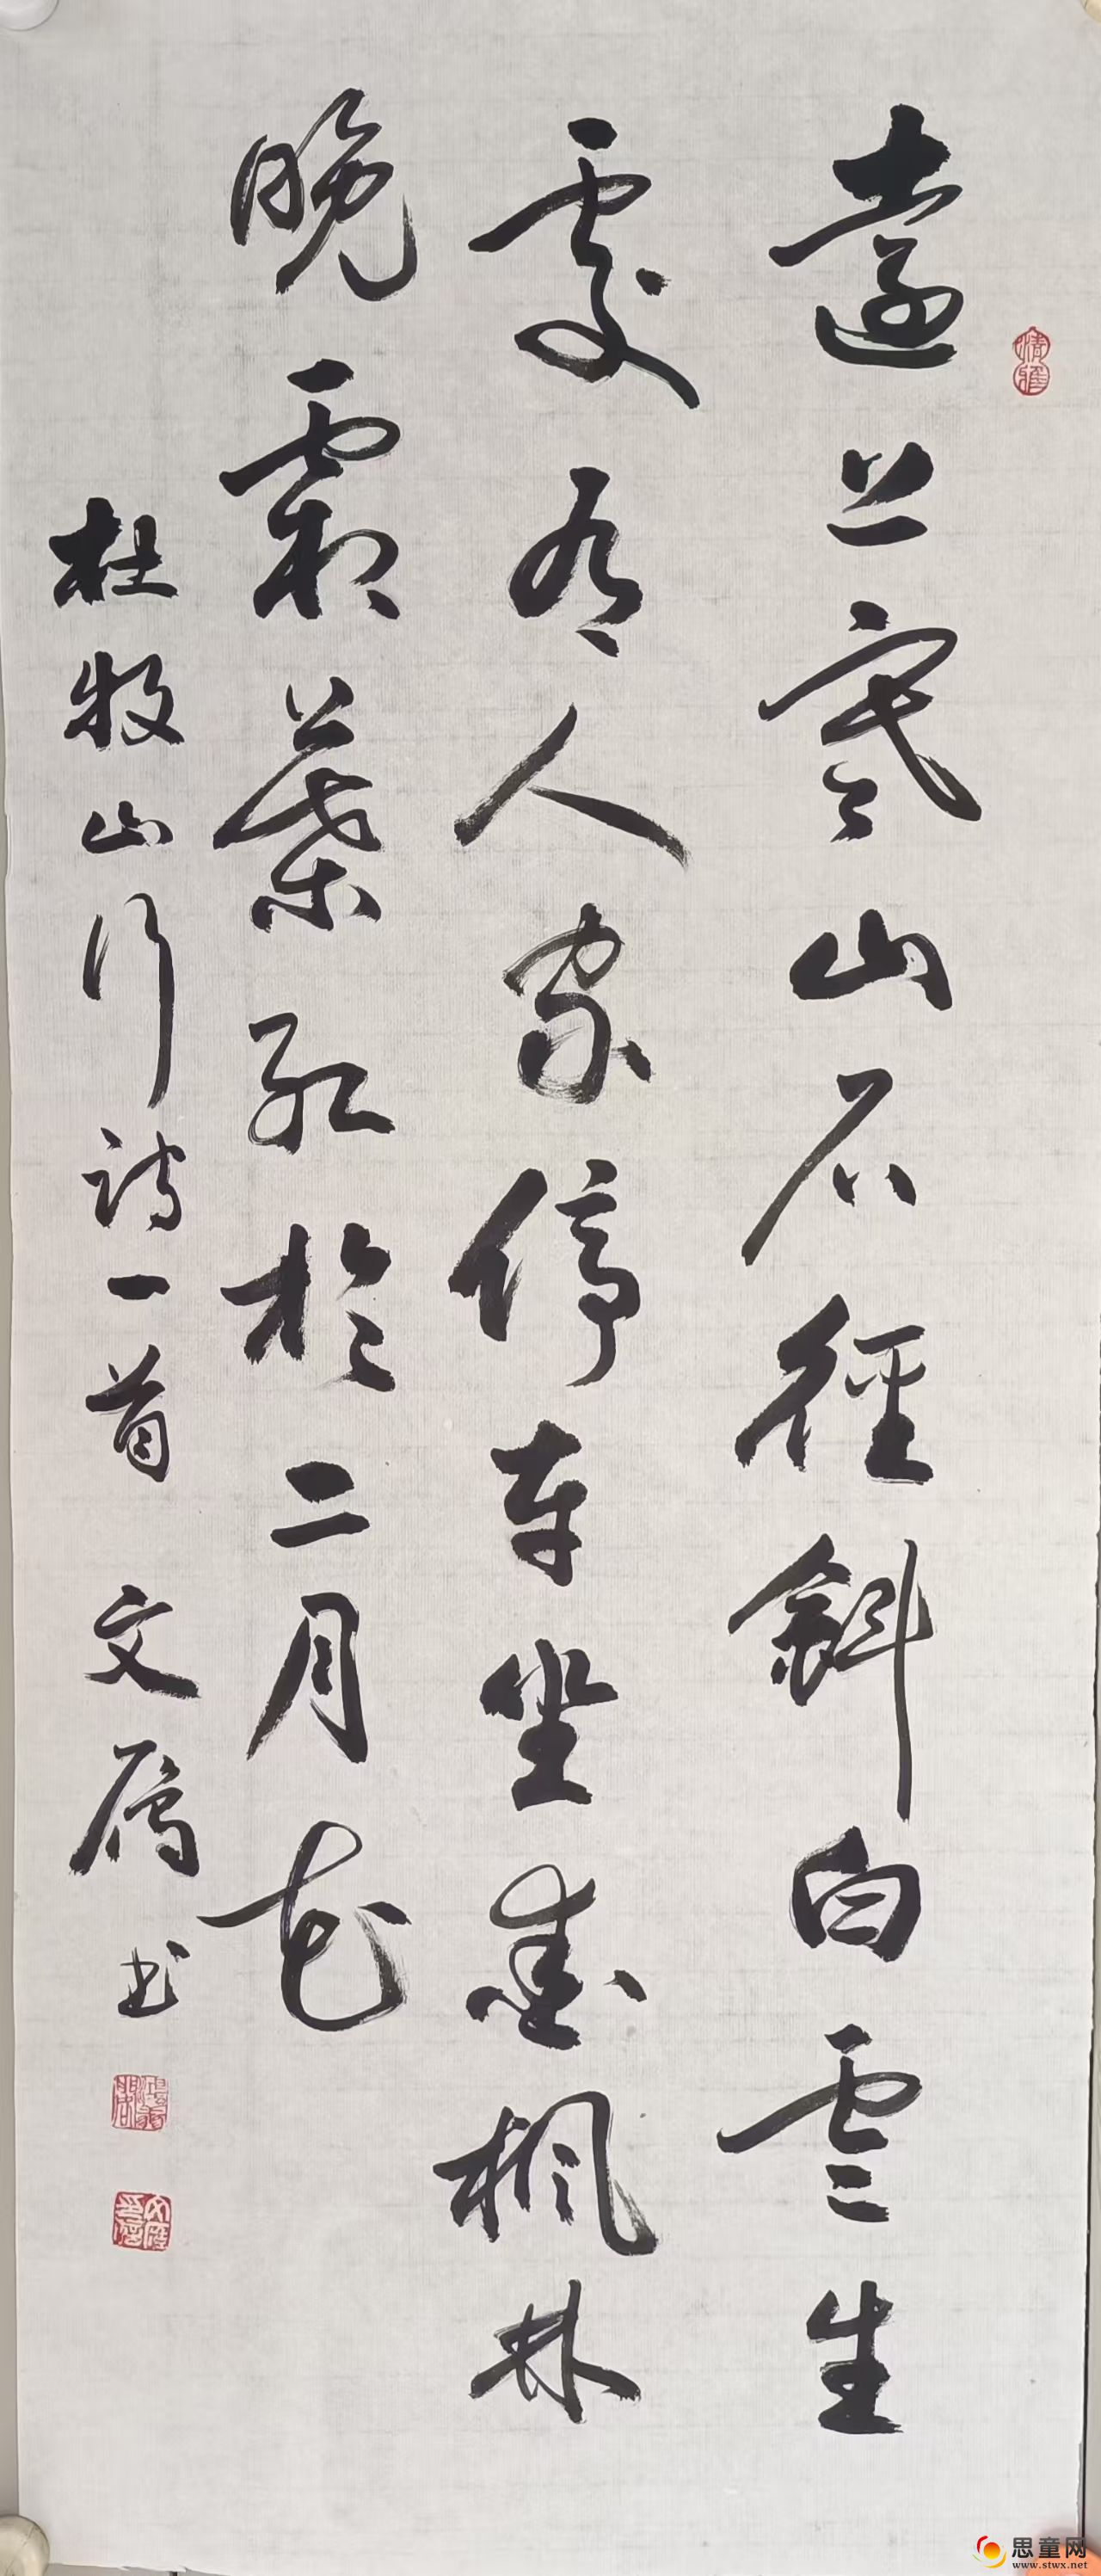 遠上寒山石徑斜白雲生
處有人家停车坐愛楓林
晚霜葉紅於二月花
杜牧山行詩一首 文雁书
思童网
www.stwx.net